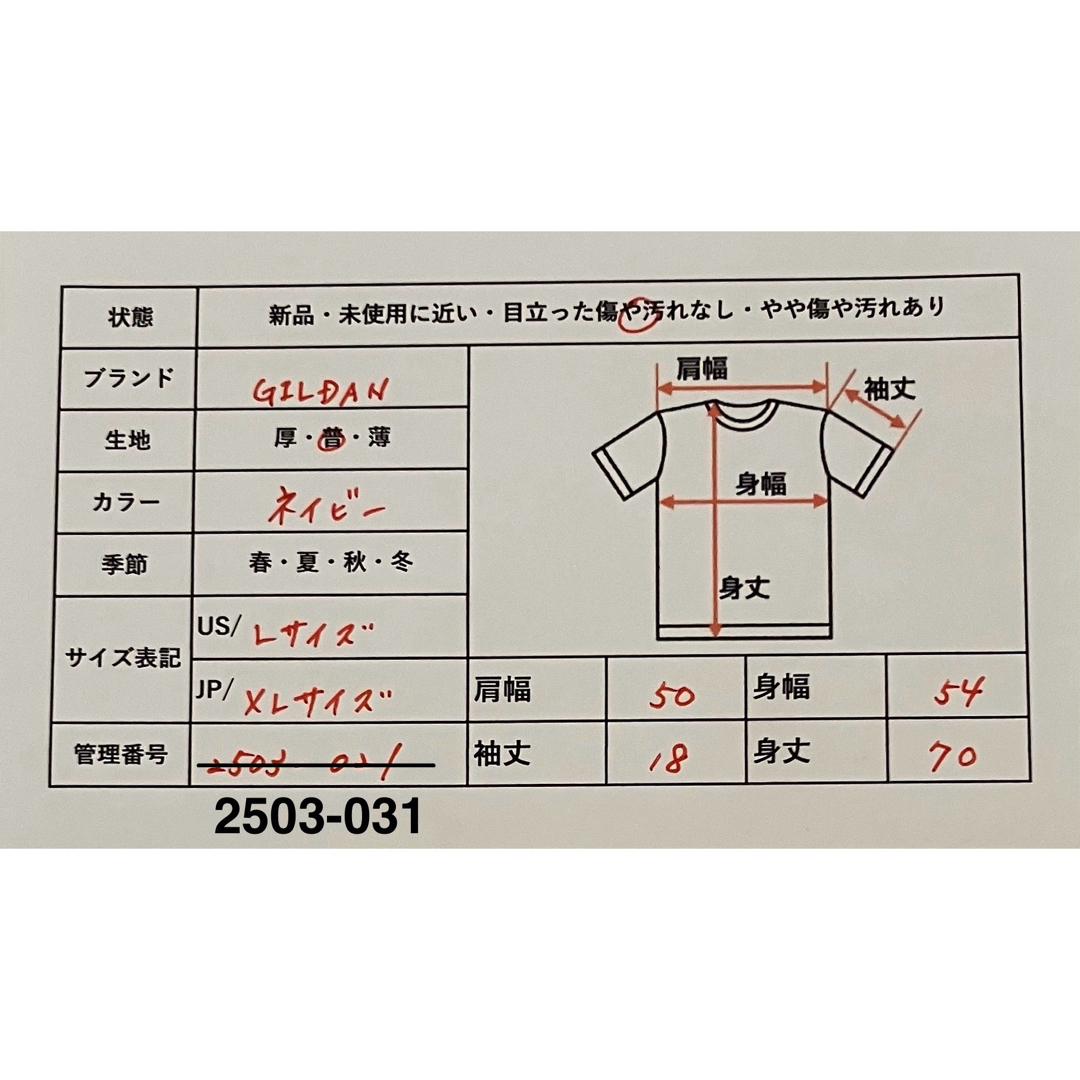 状態 新品・未使用に近い・目立った傷や汚れなし・やや傷や汚れあり
ブランド GILDAN
生地 厚・普・薄
カラー ネイビー
季節 春・夏・秋・冬
サイズ表記 US/ Lサイズ
JP/ XLサイズ
肩幅
袖丈
身幅
身丈
肩幅 50 身幅 54
管理番号 2503-021 袖丈 18 身丈 70
2503-031